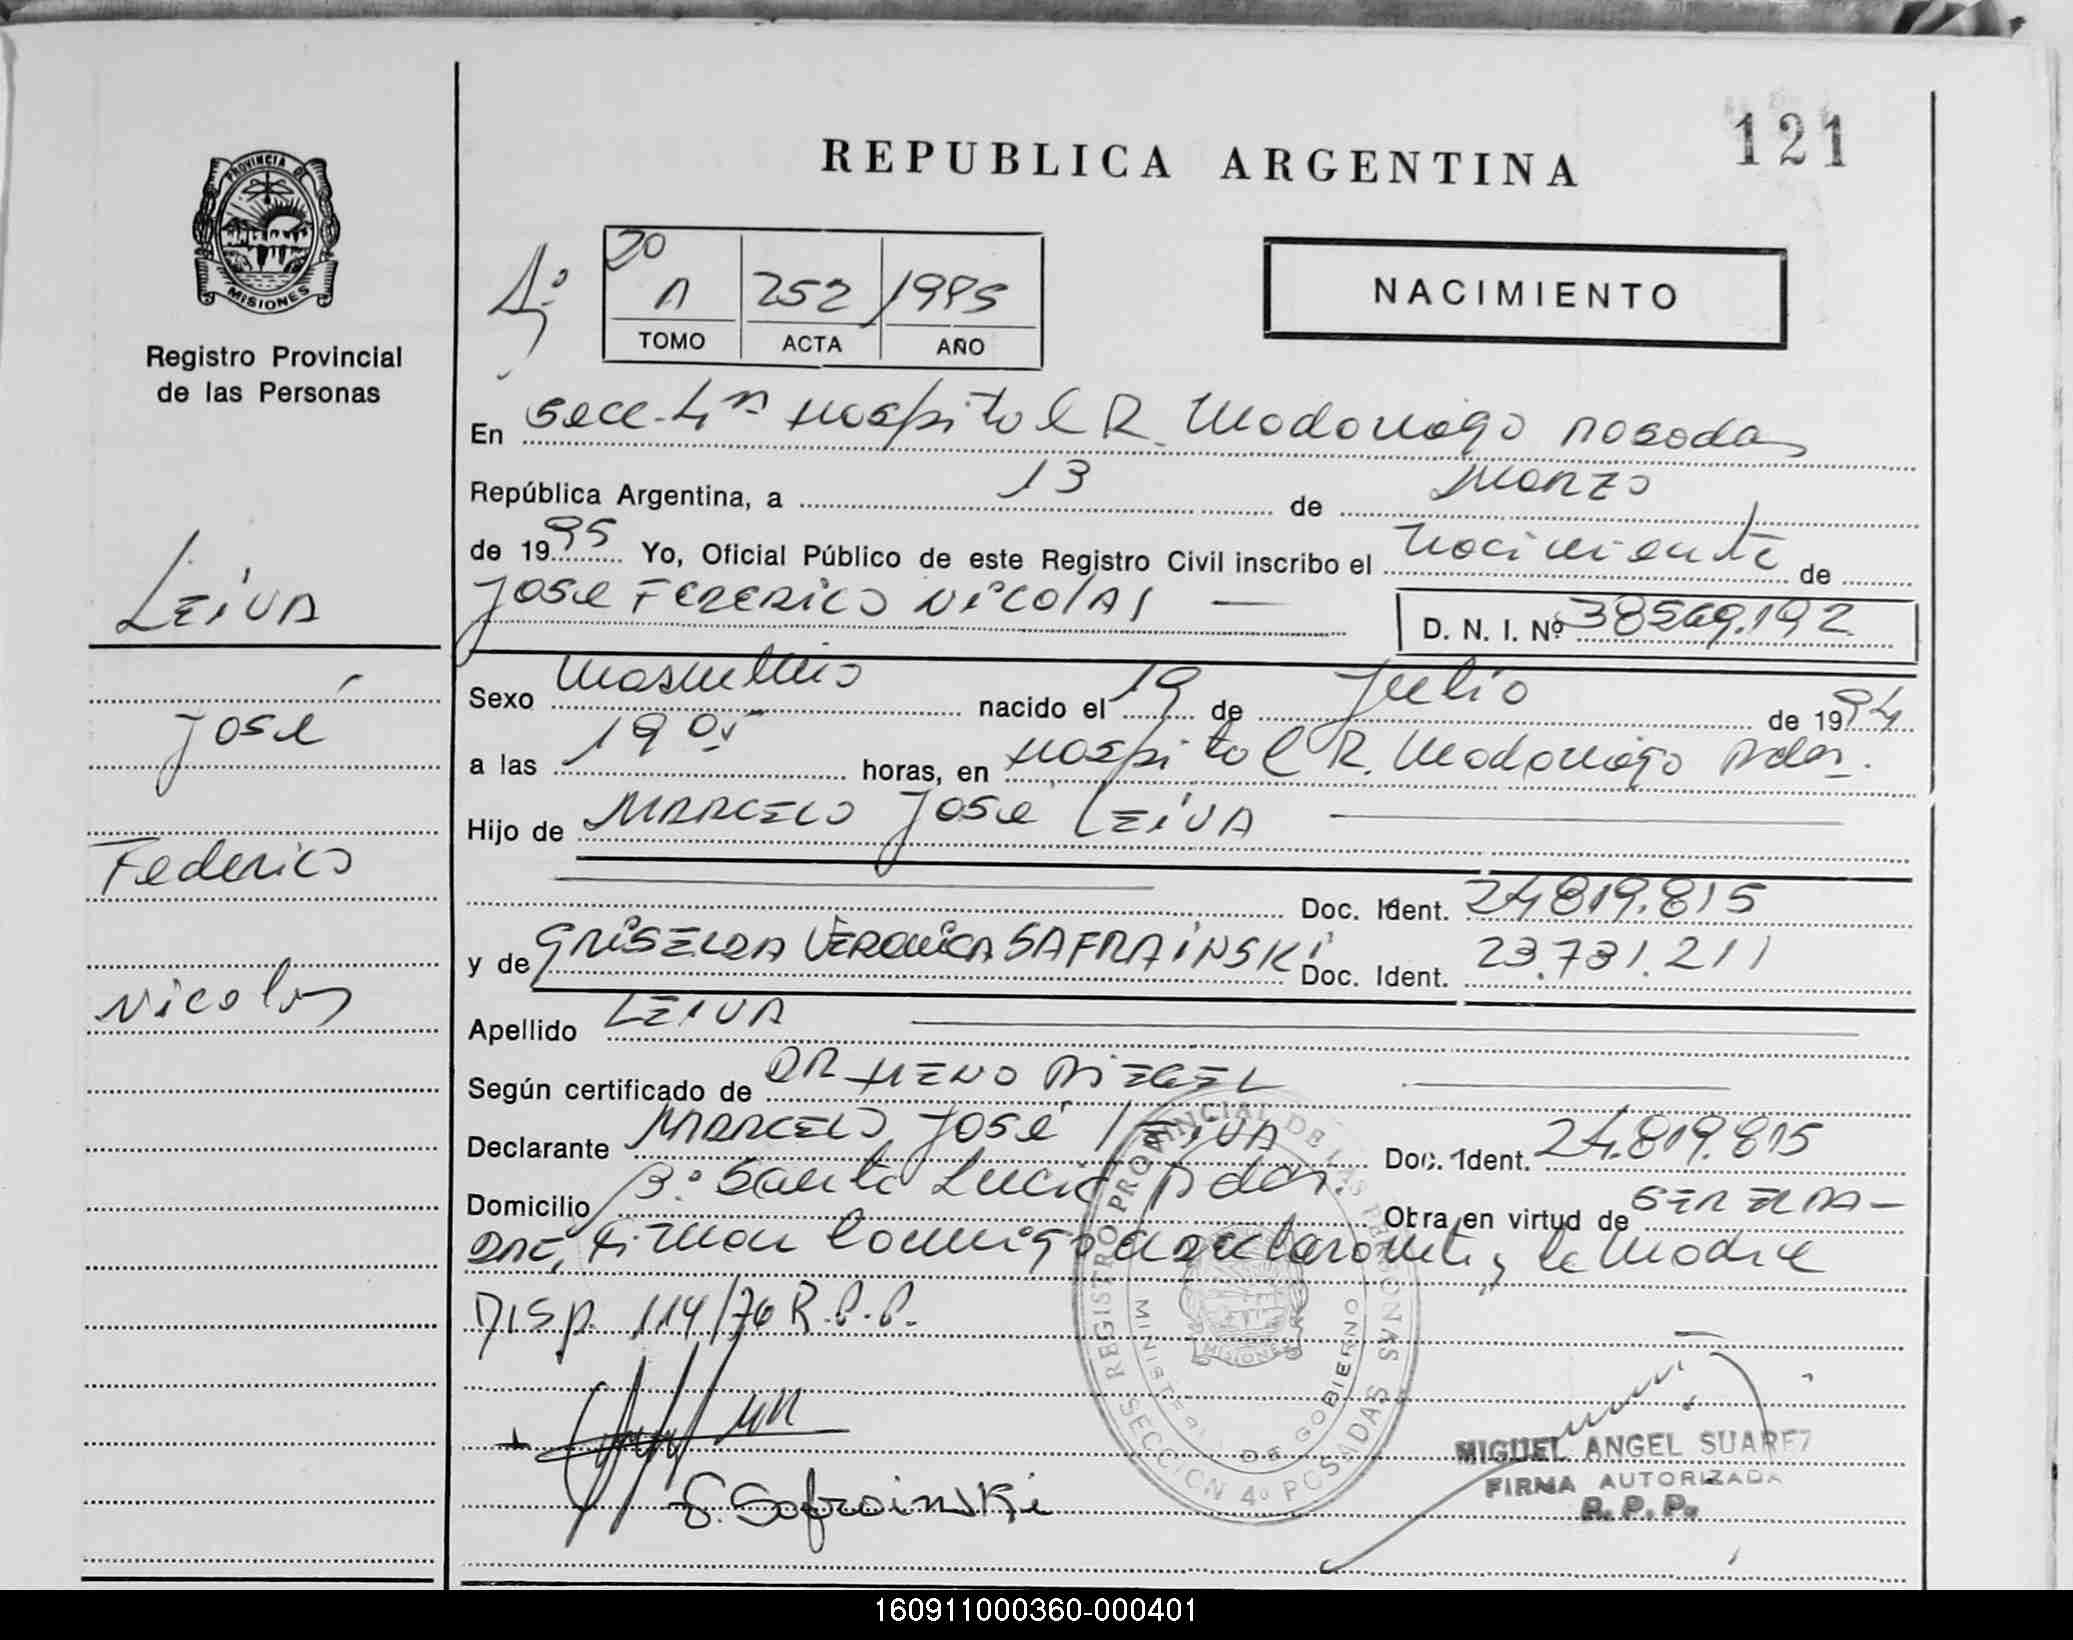 121
REPUBLICA ARGENTINA
PROVINCIA DE
MISIONES
Registro Provincial
de las Personas
4º
20
A 252 1995
TOMO ACTA AÑO
NACIMIENTO
En Secc. 4ta Hospital R. Madariaga Posadas
República Argentina, a 13 de Marzo
de 1995 Yo, Oficial Público de este Registro Civil inscribo el Nacimiento de
Jose FEDERICO NicolAs
D. N. I. Nº 38569.192
LEIVA
José
Federico
Nicolas
Sexo Masculino nacido el 19 de Julio de 1994
a las 19 05 horas, en Hospital R. Madariaga Pdas.
Hijo de MARCELO José LEIVA
Doc. Ident. 24819.815
y de GRISELDA VERONICA SAFRAINSKI Doc. Ident. 23.731.211
Apellido LEIVA
Según certificado de DR
Declarante MARCELO José LEIVA Doc. Ident. 24.819.815
Domicilio Bº Santa Lucia Pdas. Obra en virtud de SER EL PA-
DRE, Firman conmigo declarante y la Madre
DISP. 114/76 R.P.P.
REGISTRO PROVINCIAL DE LAS PERSONAS
MINISTERIO DE GOBIERNO
MISIONES
SECCION 4º POSADAS
G. Safrainski
MIGUEL ANGEL SUAREZ
FIRMA AUTORIZADA
R. P. P.
160911000360-000401